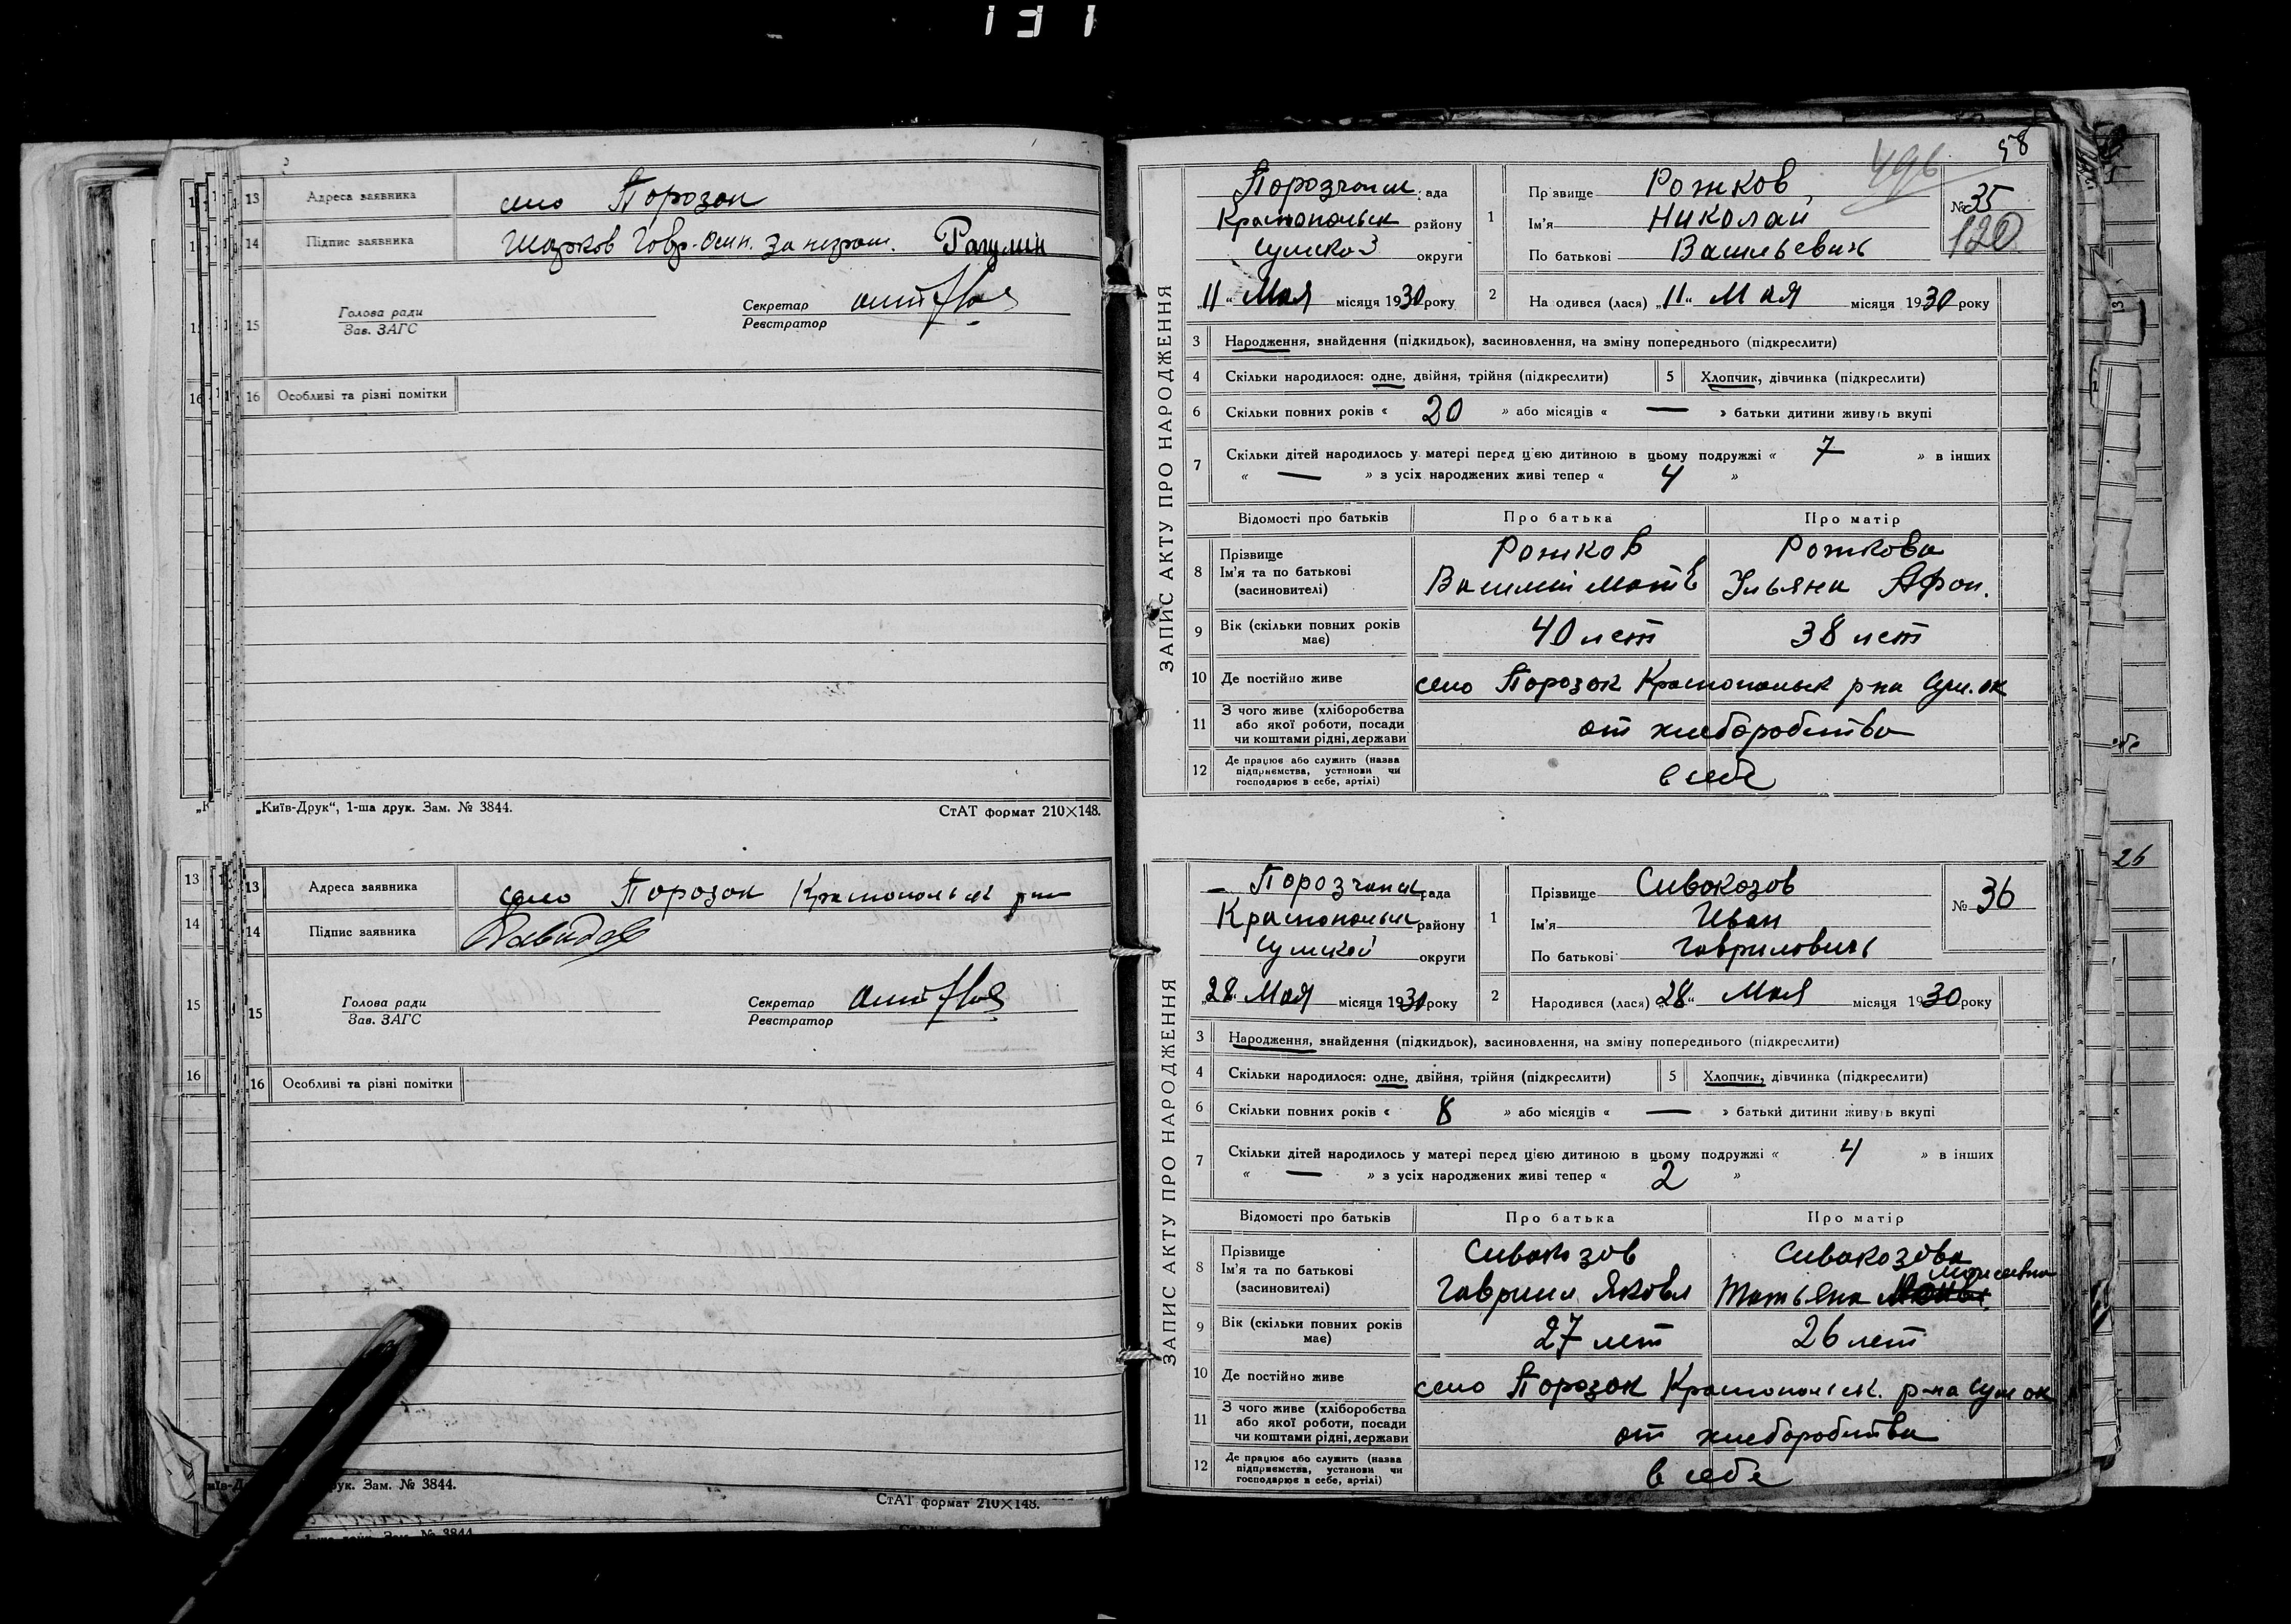 131
13 Адреса заявника село Порозок
14 Підпис заявника Шарков Гавр. Осип. За неграм. Рагулин
15 Голова ради
Зав. ЗАГС
Секретар
Реєстратор
16 Особливі та різні помітки
„Київ-Друк“, 1-ша друк. Зам. № 3844.
СтАТ формат 210×148.
13 Адреса заявника село Порозок Краснопольск р-на
14 Підпис заявника
15 Голова ради
Зав. ЗАГС
Секретар
Реєстратор
16 Особливі та різні помітки
рук. Зам. № 3844.
СтАТ формат 210×148.
58
496
ЗАПИС АКТУ ПРО НАРОДЖЕННЯ
Порозчанск рада
Краснопольск району
Сумской округи
„11“ Мая місяця 1930 року
1 Прізвище Рожков
Ім'я Николай
По батькові Васильевич
№ 35
120
2 На одився (лася) „11“ Мая місяця 1930 року
3 Народження, знайдення (підкидьок), засиновлення, на зміну попереднього (підкреслити)
4 Скільки народилося: одне, двійня, трійня (підкреслити) 5 Хлопчик, дівчинка (підкреслити)
6 Скільки повних років « 20 » або місяців « — » батьки дитини живуть вкупі
7 Скільки дітей народилось у матері перед цією дитиною в цьому подружжі « 7 » в інших
« — » з усіх народжених живі тепер « 4 »
Відомості про батьків Про батька Про матір
8 Прізвище Рожков Рожкова
Ім'я та по батькові Василий Матв Ульяна Афон.
(засиновителі)
9 Вік (скільки повних років має) 40 лет 38 лет
10 Де постійно живе село Порозок Краснопольск р-на Сум. ок
11 З чого живе (хліборобства
або якої роботи, посади от хлеборобства
чи коштами рідні, держави
12 Де працює або служить (назва
підприємства, установи чи в себе
господарює в себе, артілі)
ЗАПИС АКТУ ПРО НАРОДЖЕННЯ
Порозчанск рада
Краснопольск району
Сумской округи
„28“ Мая місяця 1930 року
1 Прізвище Сивокозов
Ім'я Иван
По батькові Гаврилович
№ 36
2 Народився (лася) „28“ Мая місяця 1930 року
3 Народження, знайдення (підкидьок), засиновлення, на зміну попереднього (підкреслити)
4 Скільки народилося: одне, двійня, трійня (підкреслити) 5 Хлопчик, дівчинка (підкреслити)
6 Скільки повних років « 8 » або місяців « — » батьки дитини живуть вкупі
7 Скільки дітей народилось у матері перед цією дитиною в цьому подружжі « 4 » в інших
« — » з усіх народжених живі тепер « 2 »
Відомості про батьків Про батька Про матір
8 Прізвище Сивокозов Сивокозова
Ім'я та по батькові Гаврил Яковл Татьяна
(засиновителі)
9 Вік (скільки повних років має) 27 лет 26 лет
10 Де постійно живе село Порозок Краснопольск. р-на Сум ок
11 З чого живе (хліборобства
або якої роботи, посади от хлеборобства
чи коштами рідні, держави
12 Де працює або служить (назва
підприємства, установи чи в себе
господарює в себе, артілі)
26